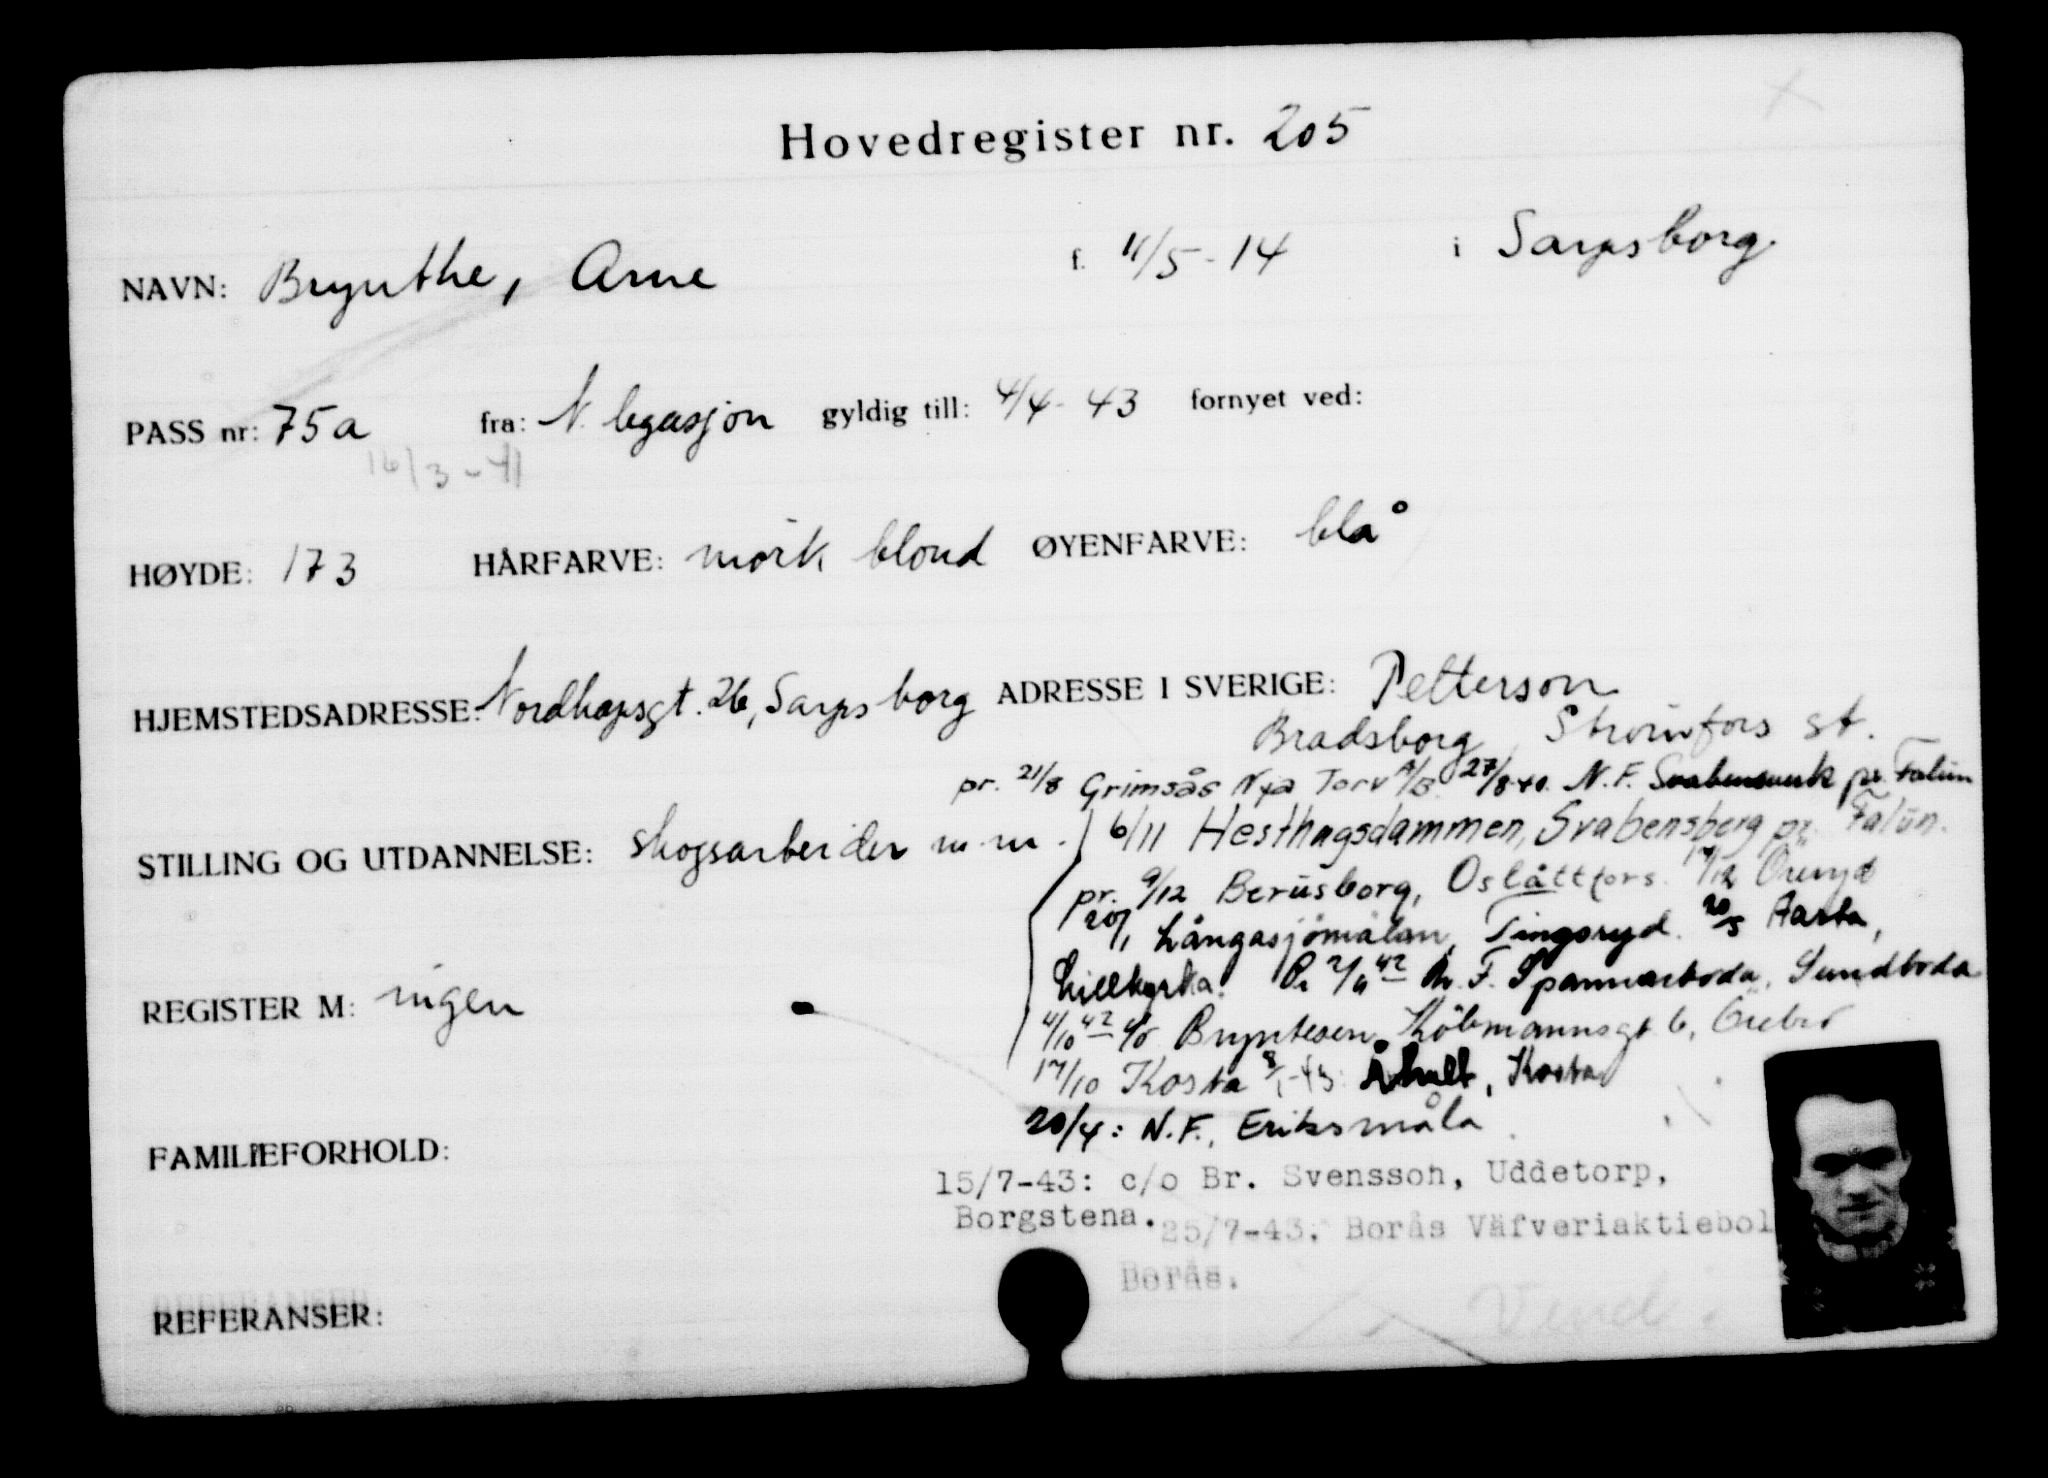 Hovedregister nr. 205
NAVN: Brynthe, Arne f. 11/5-14 i Sarpsborg
PASS nr: 75a fra: N. legasjon gyldig till: 4/4-43 fornyet ved:
16/3-41
HØYDE: 173 HÅRFARVE: mörk blond ØYENFARVE: blå
HJEMSTEDSADRESSE: 26, Sarpsborg ADRESSE I SVERIGE: Petterson
Bradsborg Strömfors st.
pr. 21/8 Grimsås Nya Torv A/B. 27/8-40. N.F. Svabensverk pr. Falun
STILLING OG UTDANNELSE: skogsarbeider m.m. 6/11 Hesthagsdammen, Svabensberg pr. Falun.
pr. 9/12 Berusborg, Oslättfors. 17/12
20/1 Långasjömålan, Tingsryd. 20/5
REGISTER M: ingen Lillkyrka. N.F. Spannarboda, Sundboda
4/10 42 Bryntesen, Köbmannsgt 6, Örebro
17/10 Kosta 8/1-43: Åhult, Kosta
20/4: N.F., Eriksmåla
FAMILIEFORHOLD:
15/7-43: c/o Br. Svensson, Uddetorp,
Borgstena. 25/7-43: Borås Väfveriaktiebol
Borås.
Vend.
REFERANSER: